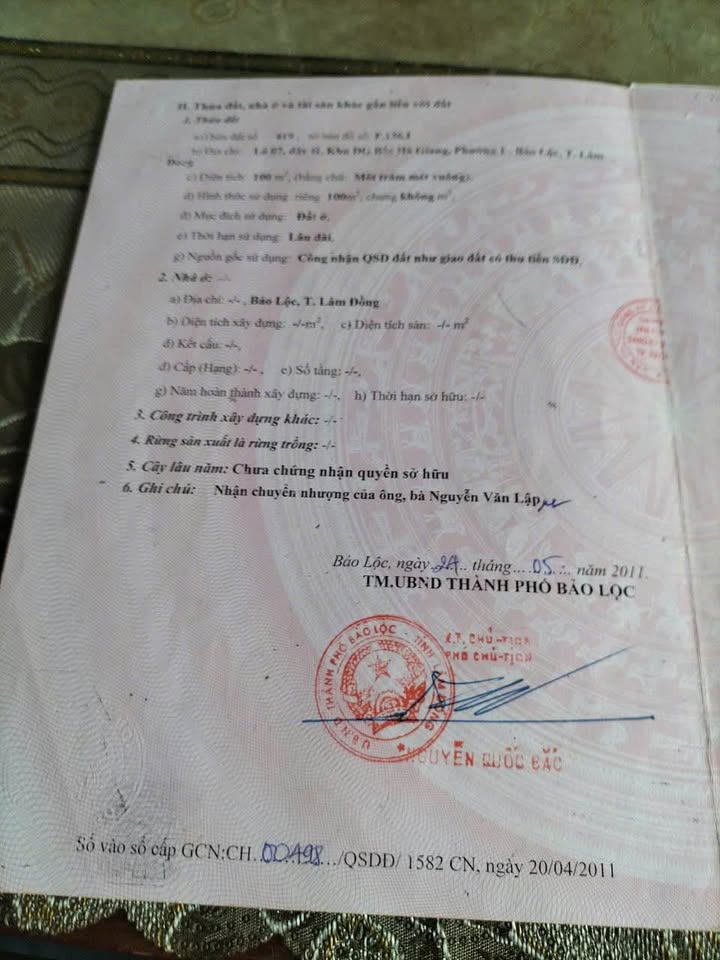 II. Thửa đất, nhà ở và tài sản khác gắn liền với đất
1. Thửa đất
a) Thửa đất số 619, tờ bản đồ số: F.136.I
b) Địa chỉ: Lô 07, dãy H, Khu ĐG Bắc Hà Giang, Phường I - Bảo Lộc, T. Lâm
Đồng
c) Diện tích: 100 m², (bằng chữ: Một trăm mét vuông).
d) Hình thức sử dụng: riêng 100m², chung không m²,
đ) Mục đích sử dụng: Đất ở,
e) Thời hạn sử dụng: Lâu dài,
g) Nguồn gốc sử dụng: Công nhận QSD đất như giao đất có thu tiền SDĐ.
2. Nhà ở: -/-
a) Địa chỉ: -/- , Bảo Lộc, T. Lâm Đồng
b) Diện tích xây dựng: -/-m², c) Diện tích sàn: -/- m²
d) Kết cấu: -/-,
đ) Cấp (Hạng): -/- , e) Số tầng: -/-,
g) Năm hoàn thành xây dựng: -/-, h) Thời hạn sở hữu: -/-
3. Công trình xây dựng khác: -/-
4. Rừng sản xuất là rừng trồng: -/-
5. Cây lâu năm: Chưa chứng nhận quyền sở hữu
6. Ghi chú: Nhận chuyển nhượng của ông, bà Nguyễn Văn Lập
Bảo Lộc, ngày..... tháng.....05..... năm 2011.
TM.UBND THÀNH PHỐ BẢO LỘC
K.T. CHỦ-TỊCH
PHÓ CHỦ-TỊCH
U.B.N.D THÀNH PHỐ BẢO LỘC - TỈNH LÂM ĐỒNG
NGUYỄN QUỐC BẮC
Số vào sổ cấp GCN:CH...00498.../QSDĐ/ 1582 CN, ngày 20/04/2011